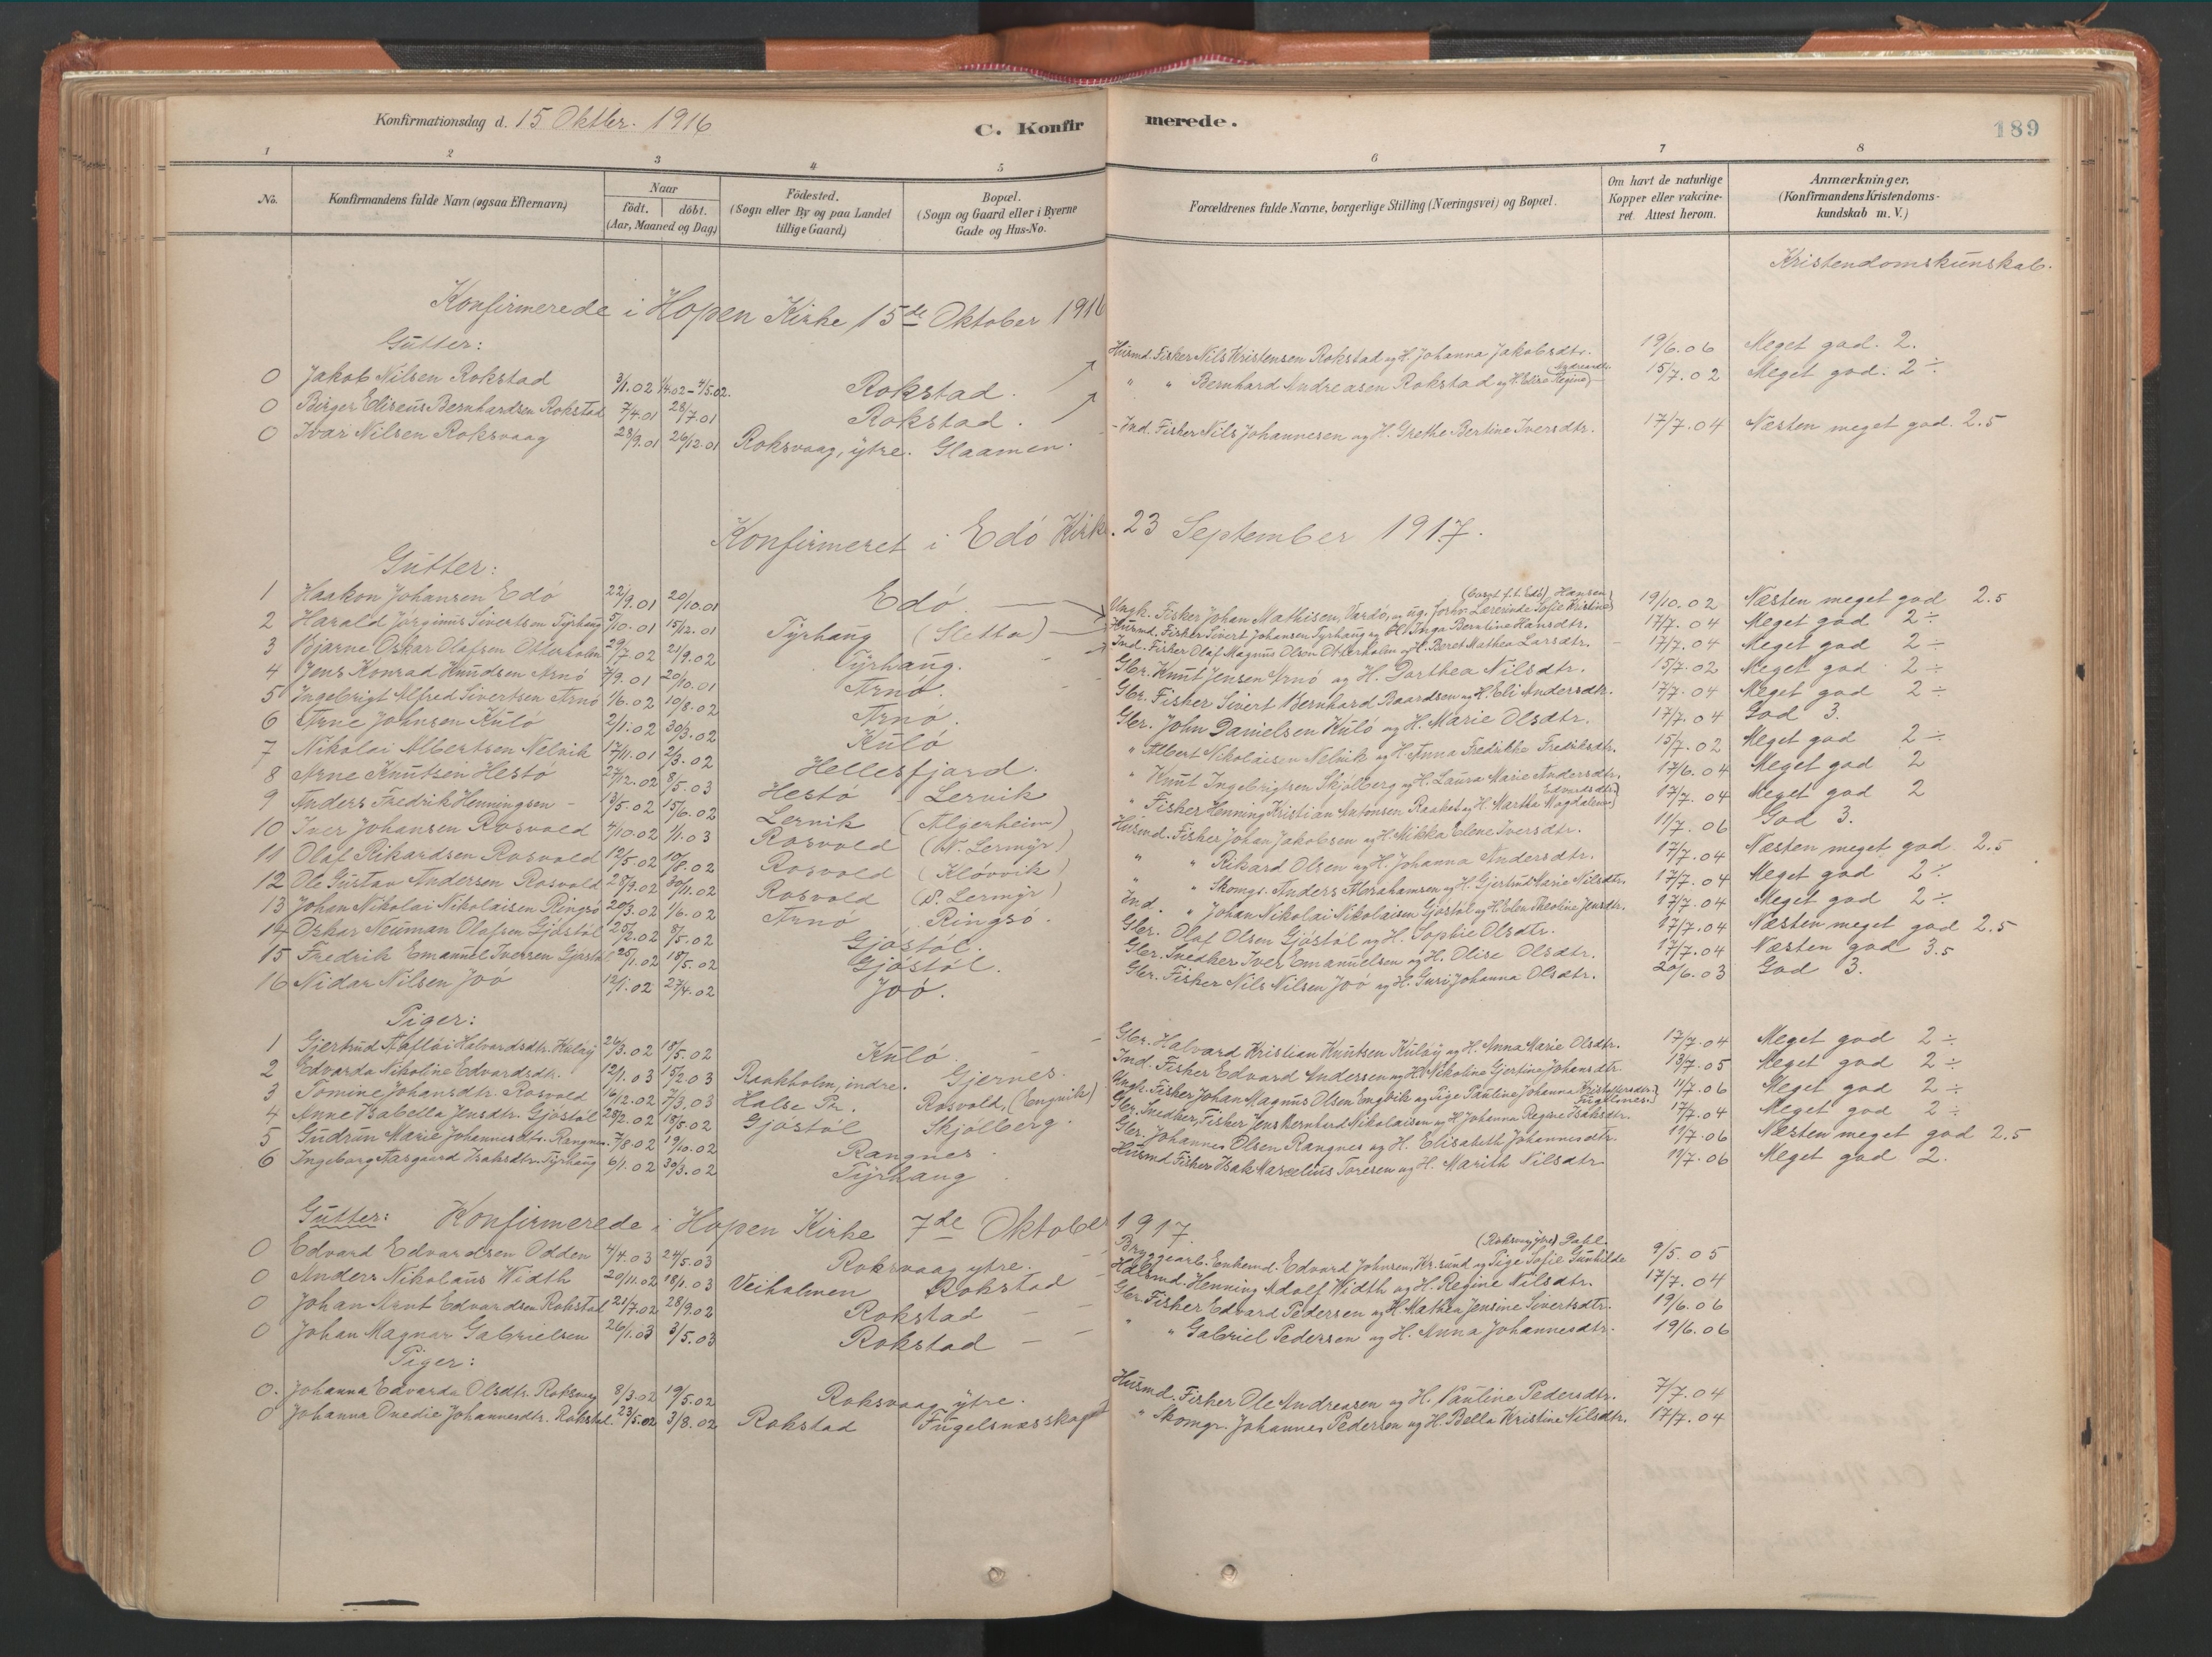 Konfirmationsdag d. 15 Oktbr. 1916
C. Konfirmerede.
189
1 2 3 4 5 6 7 8
No.
Konfirmandens fulde Navn (ogsaa Efternavn)
Naar födt. döbt. (Aar, Maaned og Dag)
Födested. (Sogn eller By og paa Landet tillige Gaard)
Bopæl. (Sogn og Gaard eller i Byerne Gade og Hus-No.
Forældrenes fulde Navne, borgerlige Stilling (Næringsvei) og Bopæl.
Om havt de naturlige Kopper eller vakcineret. Attest herom.
Anmærkninger, (Konfirmandens Kristendomskundskab m. V.)
Kristendomskunskab.
Konfirmerede i Hopen Kirke 15de Oktober 1916
Gutter:
0 Jakob Nilsen Rokstad 3/1.02 1/4.02-4/5.02. Rokstad. Husmd. Fisker Nils Kristensen Rokstad og H. Johanna Jakobsdtr. 19/6.06 Meget god. 2.
0 Birger Eliseus Bernhardsen Rokstad 7/4.01 28/7.01 Rokstad. " " Bernhard Andreasen Rokstad og H. Regine 15/7.02 Meget god. 2 ÷
0 Ivar Nilsen Roksvaag 28/9.01 26/12.01 Roksvaag, ytre. Glaamen. - Ind. Fisker Nils Johannesen og H. Grethe Bertine Iversdtr. 17/7.04 Næsten meget god. 2.5
Konfirmeret i Edö Kirke. 23 September 1917.
Gutter:
1 Haakon Johansen Edö 22/9.01 20/10.01 Edö. Ungk. Fisker Johan Mathisen, Vardö, og ug. forhv. Lærerinde Sofie Kristine Hansen 19/10.02 Næsten meget god 2.5
2 Harald Jörginus Sivertsen Tyrhaug 5/10.01 15/12.01 Tyrhaug (Sletta) Husmd. Fisker Sivert Johansen Tyrhaug og H. Inga Berntine Hansdtr. 17/7.04 Meget god 2 ÷
3 Bjarne Oskar Olafsen Otterholm 29/7 02 21/9.02 Tyrhaug. Ind. Fisker Olaf Magnus Olsen Otterholm og H. Beret Mathea Larsdtr. 17/7.04 Meget god 2 ÷
4 Jens Konrad Knudsen Arnö 7/9.01 20/10.01 Arnö. Gbr. Knut Jensen Arnö og H. Dorthea Nilsdtr. 15/7.02 Meget god 2 ÷
5 Ingebrigt Alfred Sivertsen Arnö 1/6.02 10/8.02 Arnö. Gbr. Fisker Sivert Bernhard Baardsen og H. Eli Andersdtr. 17/7.04 Meget god 2 ÷
6 Arne Johnsen Kulö 2/1.02 30/3.02 Kulö Gbr. John Danielsen Kulö og H. Marie Olsdtr. 17/7.04 God 3.
7 Nikolai Albertsen Nelvik 17/11.01 2/3.02 Hellesfjord. " Albert Nikolaisen Nelvik og H. Anna Fredrikke Fredriksdtr. 15/7.02 Meget god 2 ÷
8 Arne Knutsen Hestö 27/12.02 8/5.03 Hestö Lervik " Knut Ingebrigtsen Skjölberg og H. Laura Marie Andersdtr. 17/6.04 Meget god 2
9 Anders Fredrik Henningsen - 13/5.02 15/6.02 Lervik (Algerheim) " Fisker Henning Kristian Antonsen Raaket og H. Martha Magdalene Edvardsdtr. 17/7.04 Meget god 2
10 Iver Johansen Rosvold 4/10.02 1/1.03 Rosvold (N. Lermyr) Husmd. Fisker Johan Jakobsen og H. Mikka Elene Iversdtr. 11/7.06 God 3.
11 Olaf Rikardsen Rosvold 12/5.02 10/8.02 Rosvold (Klövvik) " " Rikard Olsen og H. Johanna Andersdtr. 17/7.04 Næsten meget god 2.5
12 Ole Gustav Andersen Rosvold 28/9.02 30/11.02 Rosvold (S. Lermyr) " " Skomgr. Anders Abrahamsen og H. Gjertrud Marie Nilsdtr. 17/7.04 Meget god 2 ÷
13 Johan Nikolai Nikolaisen Ringsö 20/3.02 1/6.02 Arnö Ringsö. Ind. " Johan Nikolai Nikolaisen Gjöstöl og H. Elen Theoline Jensdtr. 17/7.04 Meget god 2 ÷
14 Oskar Neuman Olafsen Gjöstöl 25/2.02 8/5.02 Gjöstöl. Gbr. Olaf Olsen Gjöstöl og H. Sophie Olsdtr. 17/7.04 Næsten meget god 2.5
15 Fredrik Emanuel Iversen Gjöstöl 25/1.02 18/5.02 Gjöstöl. Gbr. Snedker Iver Emanuelsen og H. Olise Olsdtr. 17/7.04 Næsten god 3.5
16 Nidar Nilsen Joö 12/1.02 27/4.02 Joö. Gbr. Fisker Nils Nilsen Joö og H. Guri Johanna Olsdtr. 20/6.03 God 3.
Piger:
1 Gjertrud Halvardsdtr. Kuløy 24/3.02 18/5.02 Kulö. Gbr. Halvard Kristian Knutsen Kuløy og H. Anna Marie Olsdtr. 17/7.04 Meget god 2 ÷
2 Edvarda Nikoline Edvardsdtr. 12/1.03 15/2 03 Raakholm, indre. Gjernes. Ind. Fisker Edvard Andersen og H. Nikoline Gjertine Johansdtr. 13/7.05 Meget god 2 ÷
3 Tomine Johansdtr. Rosvold 16/12.02 7/3.03 Halse Pr. Rosvold, (Engvik) Ungk. Fisker Johan Magnus Olsen Engvik og Pige Pauline Johanna Kristoffersdtr. Fuglsnes. 11/7.06 Meget god 2 ÷
4 Anne Isabella Jensdtr. Gjöstöl 28/2.02 18/5.02 Gjöstöl Skjölberg. Gbr. Snedker, Fisker Jens Bernhard Nikolaisen og H. Johanna Regine Isaksdtr. 17/7.04 Meget god 2 ÷
5 Gudrun Marie Johannesdtr. Rangnes. 7/8.02 19/10.02 Rangnes. Gbr. Johannes Olsen Rangnes og H. Elisabeth Johannesdtr. 11/7.06 Næsten meget god 2.5
6 Ingeborg Aasgaard Isaksdtr. Tyrhaug 6/1.02 30/3.02 Tyrhaug. Husmd. Fisker Isak Marselius Toresen og H. Marith Nilsdtr 11/7.06 Meget god 2.
Gutter: Konfirmerede i Hopen Kirke 7de Oktober 1917.
0 Edvard Edvardsen Odden 4/4.03 24/5.03 Roksvaag ytre. Bryggearb. Enkemd. Edvard Johnsen, Kr. sund og Pige Sofie Gunhilde (Roksvag ytre) Dahl. 9/5.05
0 Anders Nikolaus Width 29/11.02 18/1.03 Veiholmen Rokstad Husmd. Henning Adolf Width og H. Regine Nilsdtr. 17/7.04
0 Johan Arnt Edvardsen Rokstad 21/7.02 28/9.02 Rokstad Gbr. Fisker Edvard Pedersen og H. Mathea Jensine Sivertsdtr. 19/6.06
0 Johan Magnar Gabrielsen 26/1.03 3/5.03 Rokstad " " Gabriel Pedersen og H. Anna Johannesdtr. 19/6.06
Piger:
0. Johanna Edvarda Olsdtr. Roksvag 8/3.02 19/5.02 Roksvaag ytre. Husmd. Fisker Ole Andreasen og H. Pauline Pedersdtr. 7/7.04
0 Johanna Onedie Johannesdtr. Rokstad. 23/5.02 3/8.02 Rokstad Fugelsnesskaget " Skomgr. Johannes Pedersen og H. Bella Kristine Nilsdtr. 17/7.04